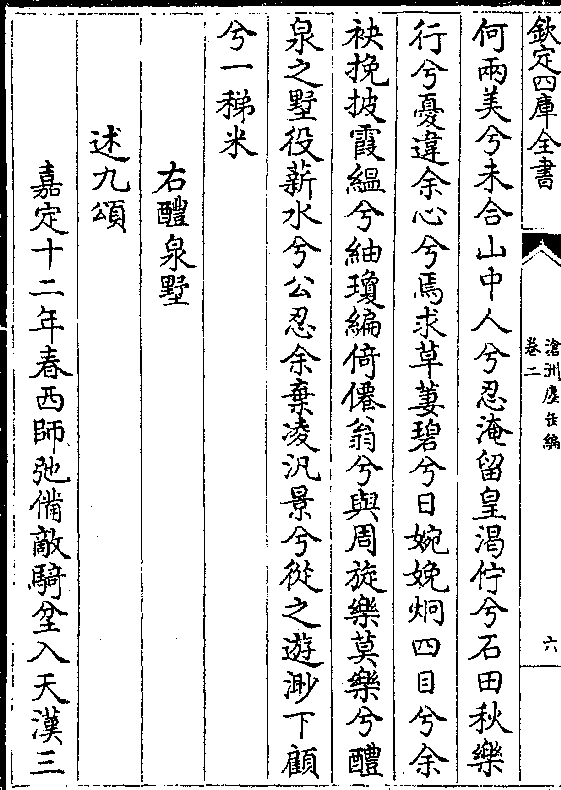 欽定四庫全書
滄洲塵缶編
卷二
六
何兩美兮未合山中人兮忍淹留皇渴佇兮石田秋樂
行兮憂違余心兮焉求草萋碧兮日婉娩炯四目兮余
袂挽披霞緼兮紬瓊編倚僊翁兮與周旋樂莫樂兮醴
泉之墅役薪水兮公忍余棄凌汎景兮從之遊渺下顧
兮一稊米
右醴泉墅
述九頌
嘉定十二年春西師弛備敵騎坌入天漢三